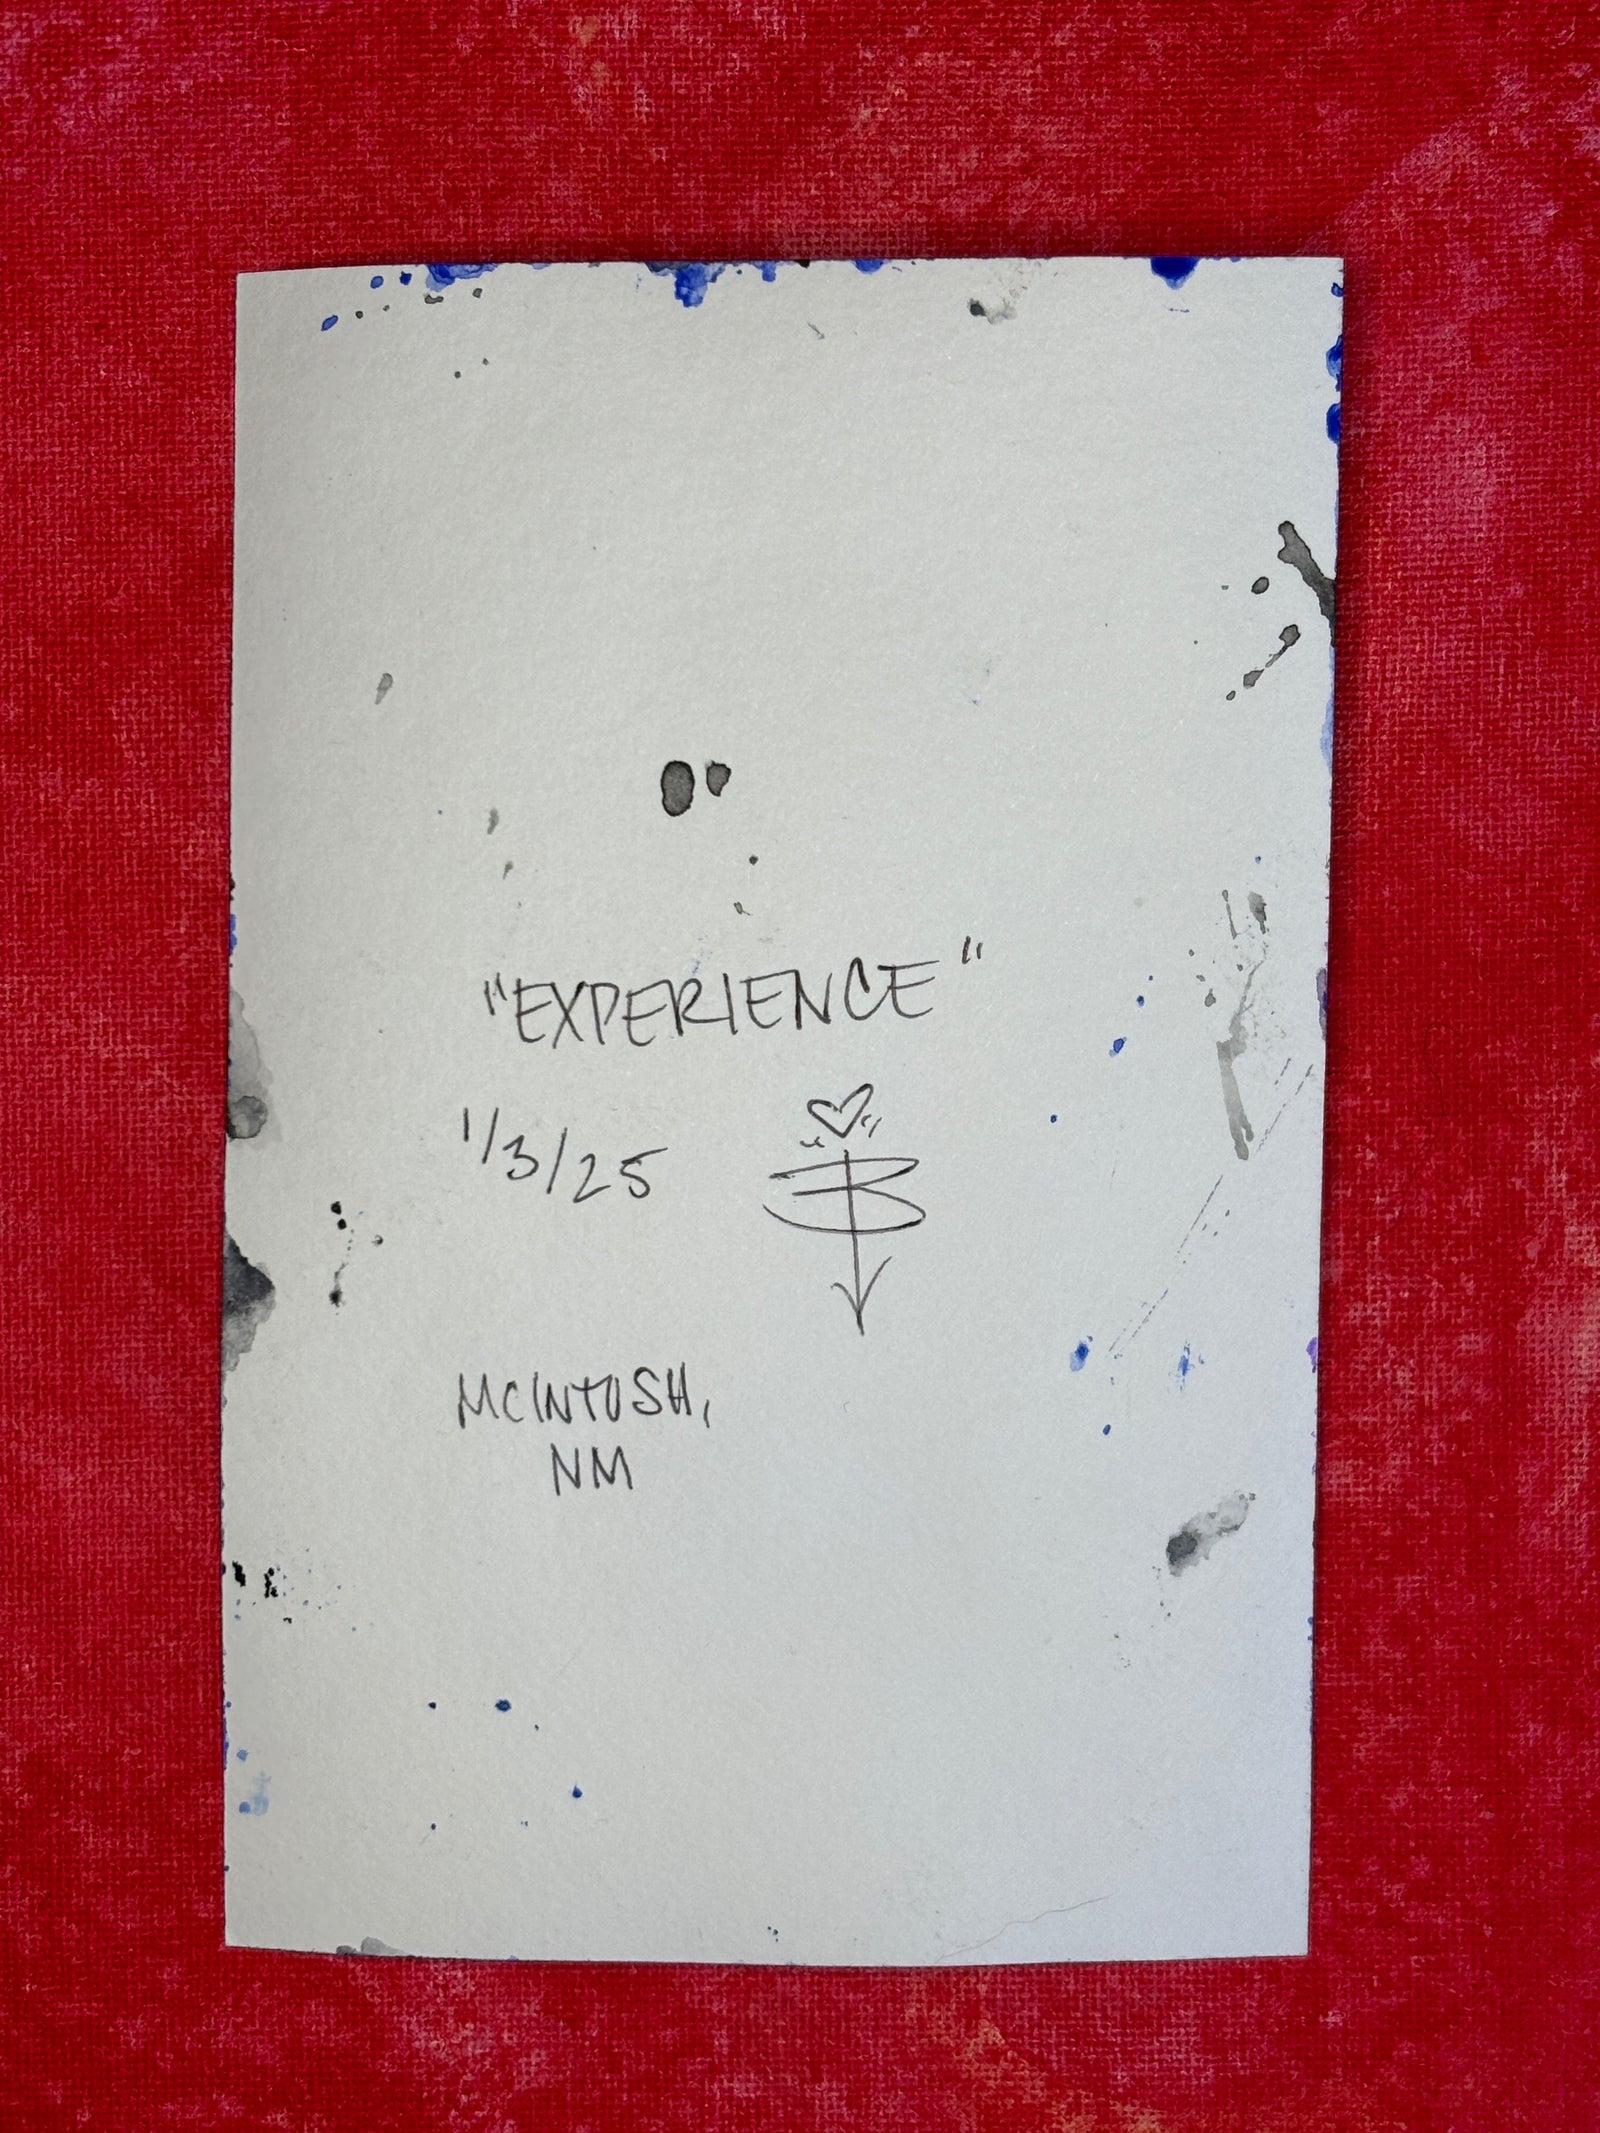 "EXPERIENCE"
1/3/25
B
MCINTOSH,
NM